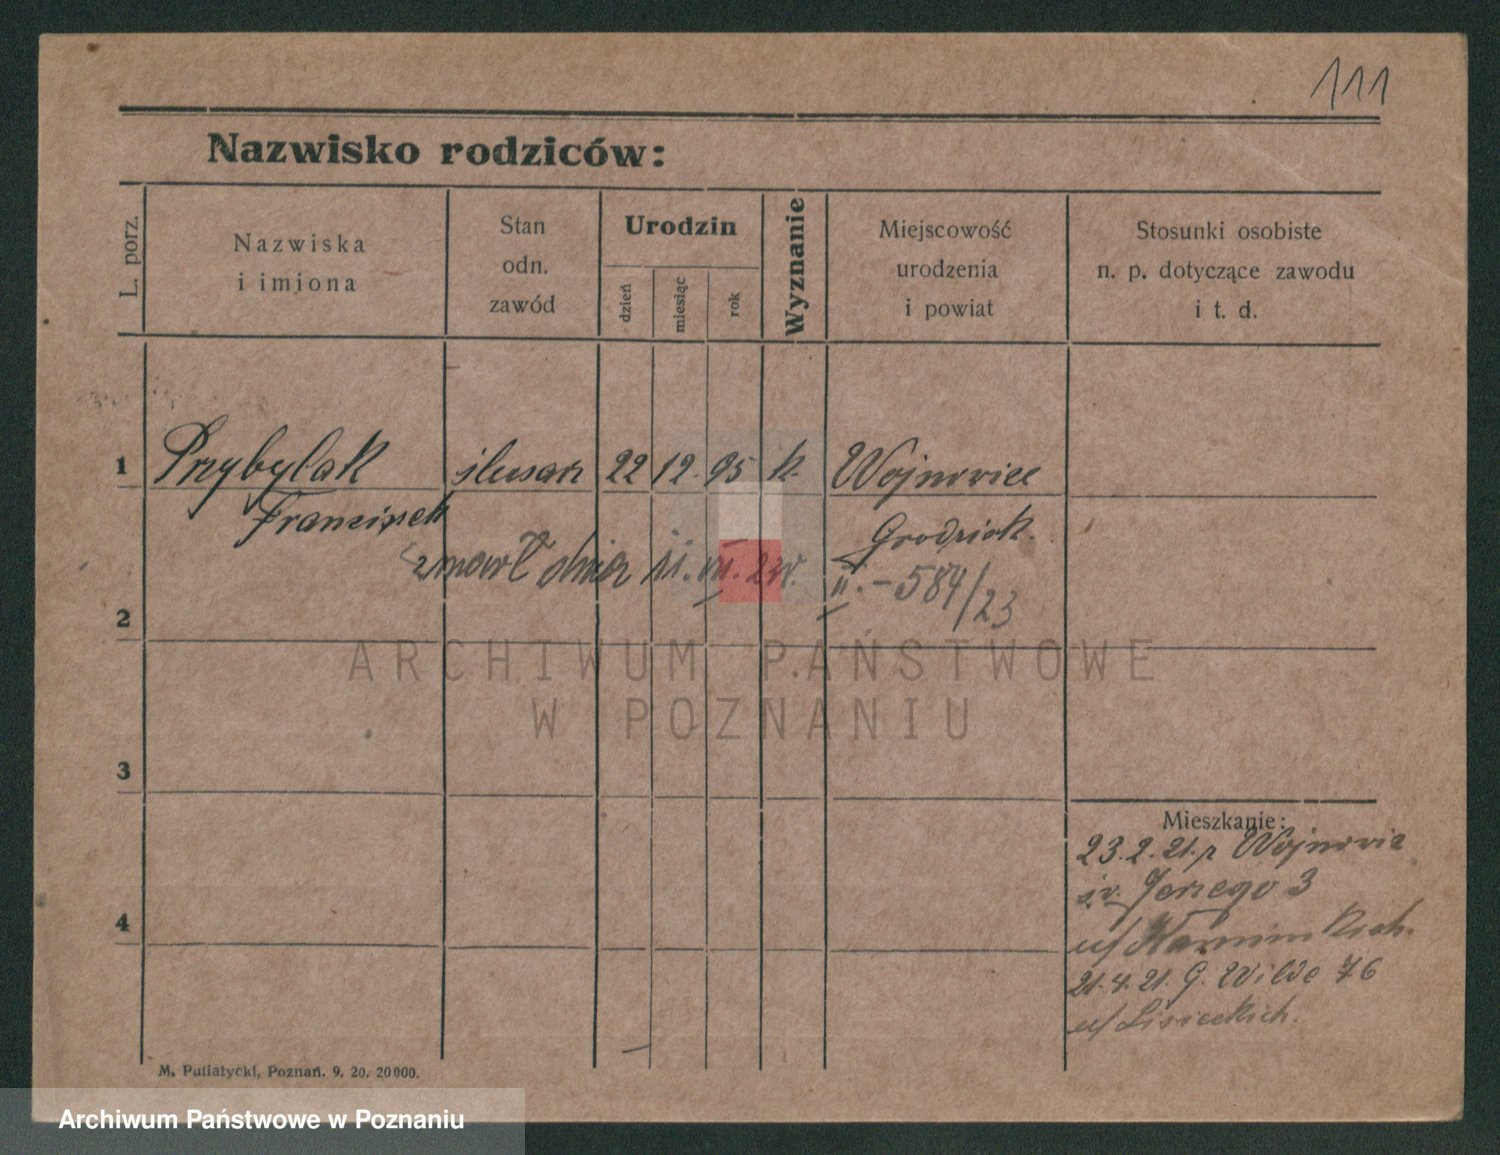 111
Nazwisko rodziców:
L. porz.
Nazwiska
i imiona
Stan
odn.
zawód
Urodzin
dzień
miesiąc
rok
Wyznanie
Miejscowość
urodzenia
i powiat
Stosunki osobiste
n. p. dotyczące zawodu
i t. d.
1 Przybylak ślusarz 22 12. 95 k. Wojnowice
Franciszek Grodzisk.
zmarł dnia 11. VII. 23r. II. - 584/23
2
ARCHIWUM PAŃSTWOWE
W POZNANIU
3
Mieszkanie:
23. 2. 21. z Wojnowic
św. Jerzego 3
4
u/
21. 4. 21. G. Wilda 76
u/ Lisieckich.
M. Putiatycki, Poznań. 9. 20. 20000.
Archiwum Państwowe w Poznaniu